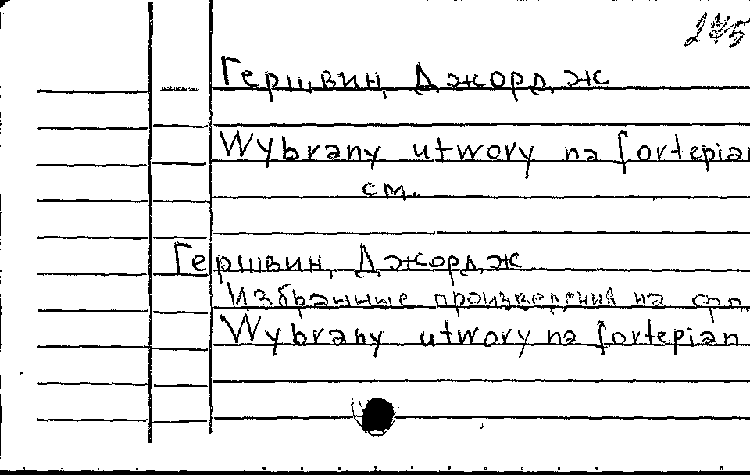 245
Гершвин, Джордж
Wybrany utwory na fortepian
см.
Гершвин, Джордж
Избранные произведения на фп.
Wybrany utwory na fortepian